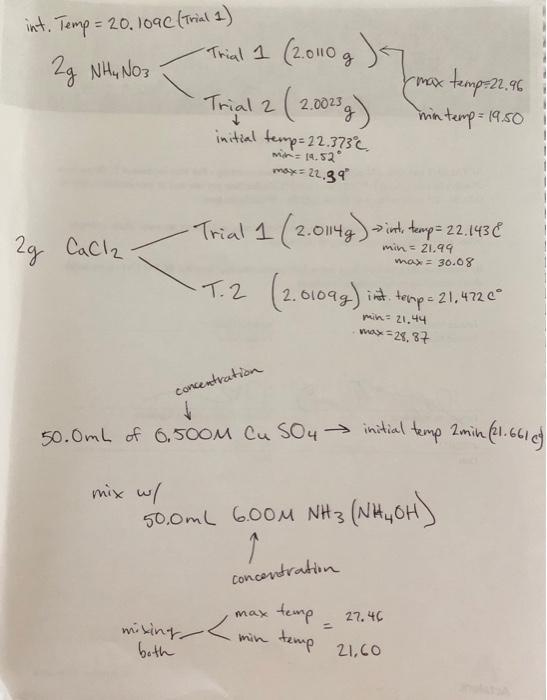 int. Temp = 20.109C (Trial 1)
2g NH4NO3
Trial 1 (2.0110 g)
max temp=22.96
min temp = 19.50
Trial 2 (2.0023g)
initial temp=22.373°C
min = 19.52°
max = 22.39°
2g CaCl2
Trial 1 (2.0114g) → int. temp = 22.143 C°
min = 21.99
max = 30.08
T. 2 (2.0109g) int. temp = 21.472 C°
min = 21.44
max = 28.87
concentration
50.0mL of 0.500M CuSO4 → initial temp 2min (21.661 c)
mix w/
50.0mL 6.00M NH3 (NH4OH)
concentration
mixing both
max temp = 27.46
min temp 21.60